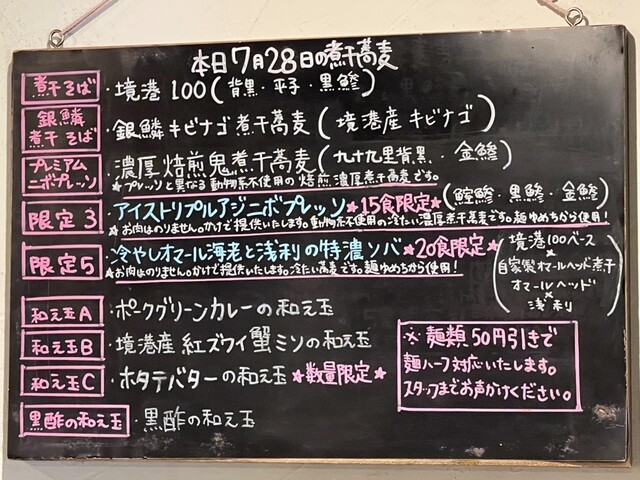 本日7月28日の煮干蕎麦
煮干そば ・境港100(背黒・平子・黒鯵)
銀鱗煮干そば ・銀鱗キビナゴ煮干蕎麦(境港産キビナゴ)
プレミアムニボプレッソ ・濃厚焙煎鬼煮干蕎麦(九十九里背黒・金鯵)
★プレッソと異なる動物系不使用の焙煎濃厚煮干蕎麦です。
限定3 ・アイストリプルアジニボプレッソ★15食限定★(鯵・黒鯵・金鯵)
★お肉はのりません。かけで提供いたします。動物系不使用の冷たい濃厚煮干蕎麦です。麺ゆめちから使用!
限定5 ・冷やしオマール海老と浅利の特濃ソバ★20食限定★
★お肉はのりません。かけで提供いたします。冷たい蕎麦です。麺ゆめちから使用!
(境港100ベース
×
自家製オマールヘッド煮干
オマールヘッド
×
浅利)
和え玉A ・ポークグリーンカレーの和え玉
和え玉B ・境港産紅ズワイ蟹ミソの和え玉
和え玉C ・ホタテバターの和え玉★数量限定★
黒酢の和え玉 ・黒酢の和え玉
※麺類50円引きで
麺ハーフ対応いたします。
スタッフまでお声かけください。